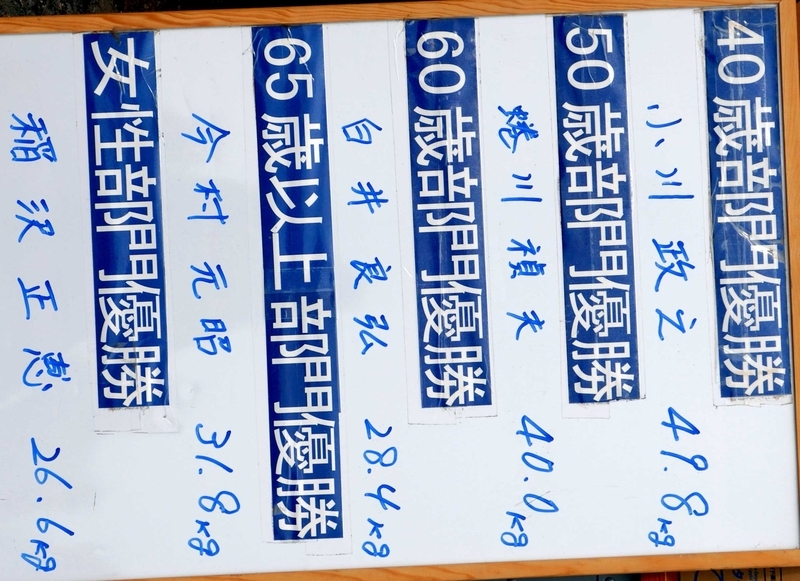 40歳部門優勝
小川政之 49.8kg
50歳部門優勝
蜷川禎夫 40.0kg
60歳部門優勝
白井良弘 28.4kg
65歳以上部門優勝
今村元昭 31.8kg
女性部門優勝
稲沢正恵 26.6kg